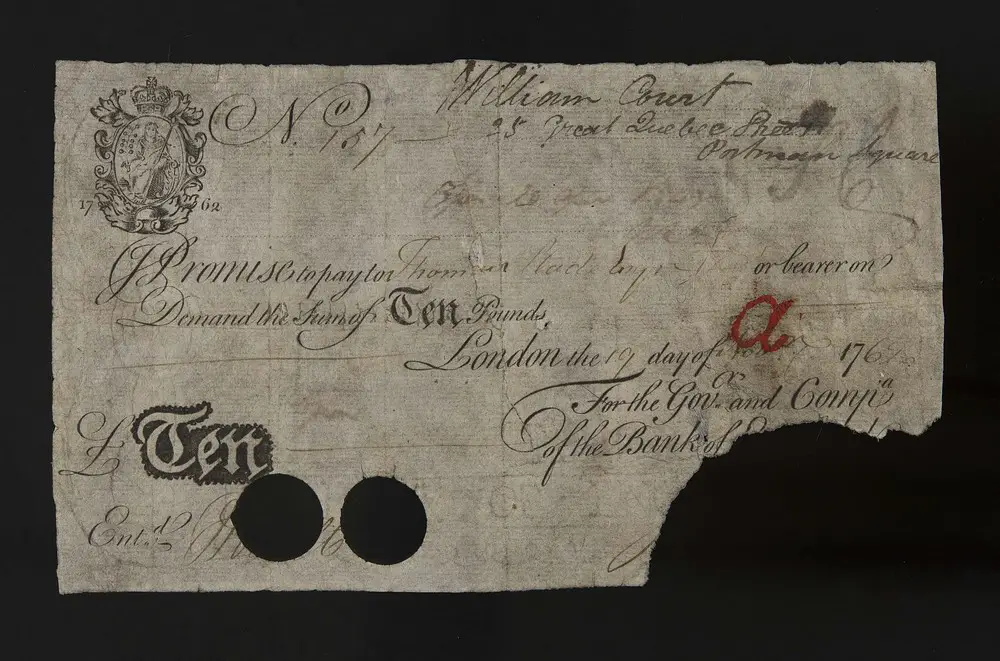 William Court
No 157
35 Great Quebec Street
Portman Square
17 62
I Promise to pay to Thomas or bearer on
Demand the Sum of Ten Pounds
a
London the 19 day of 176
For the Govr and Compa
of the Bank of
£ Ten
Entd